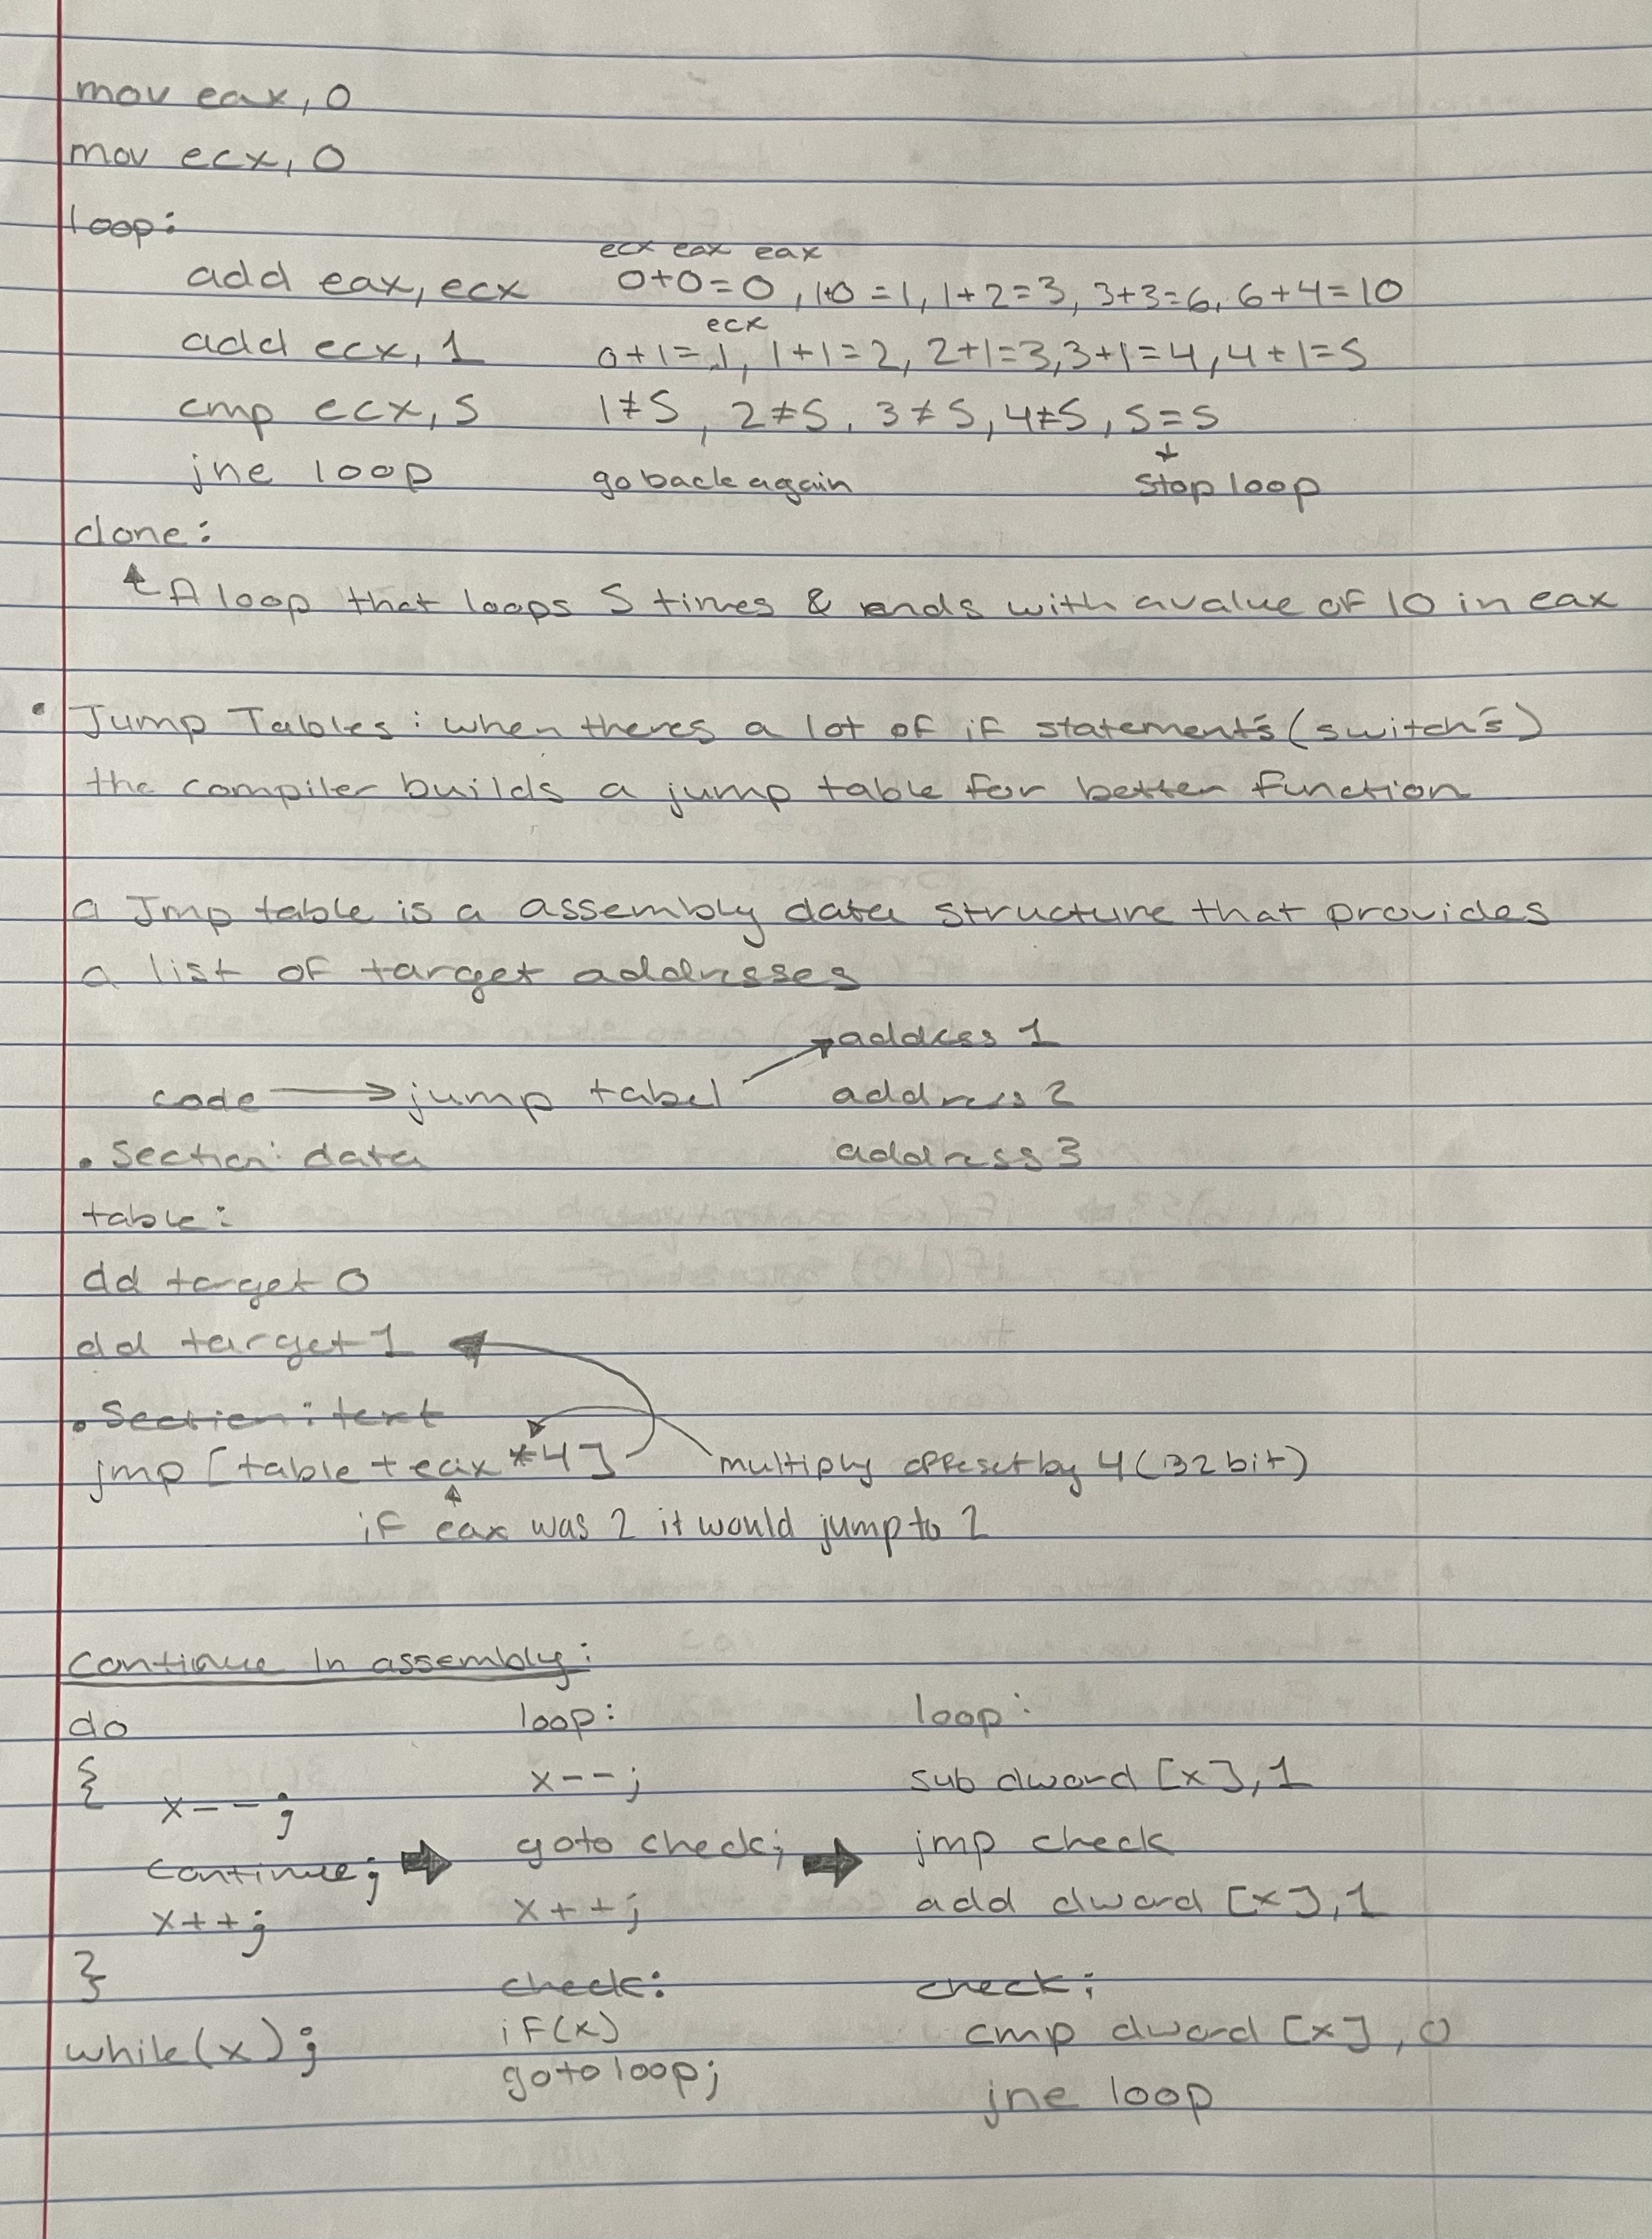 mov eax, 0
mov ecx, 0
loop:
ecx eax eax
add eax, ecx 0+0=0, 1+0=1, 1+2=3, 3+3=6, 6+4=10
ecx
add ecx, 1 0+1=1, 1+1=2, 2+1=3, 3+1=4, 4+1=5
cmp ecx, 5 1≠5, 2≠5, 3≠5, 4≠5, 5=5
jne loop go back again stop loop
done:
A loop that loops 5 times & ends with a value of 10 in eax
• Jump Tables: when theres a lot of if statement's (switch's)
the compiler builds a jump table for better function
a Jmp table is a assembly data structure that provides
a list of target addresses
address 1
code → jump tabel address 2
• Section: data address 3
table:
dd target 0
dd target 1
• Section: text
jmp [table + eax *4] multiply offset by 4 (32 bit)
if eax was 2 it would jump to 2
Continue In assembly:
do loop: loop:
{ x--; sub dword [x], 1
x--;
goto check; jmp check
continue;
x++; x++; add dword [x], 1
} check: check:
while(x); if(x) cmp dword [x], 0
goto loop; jne loop